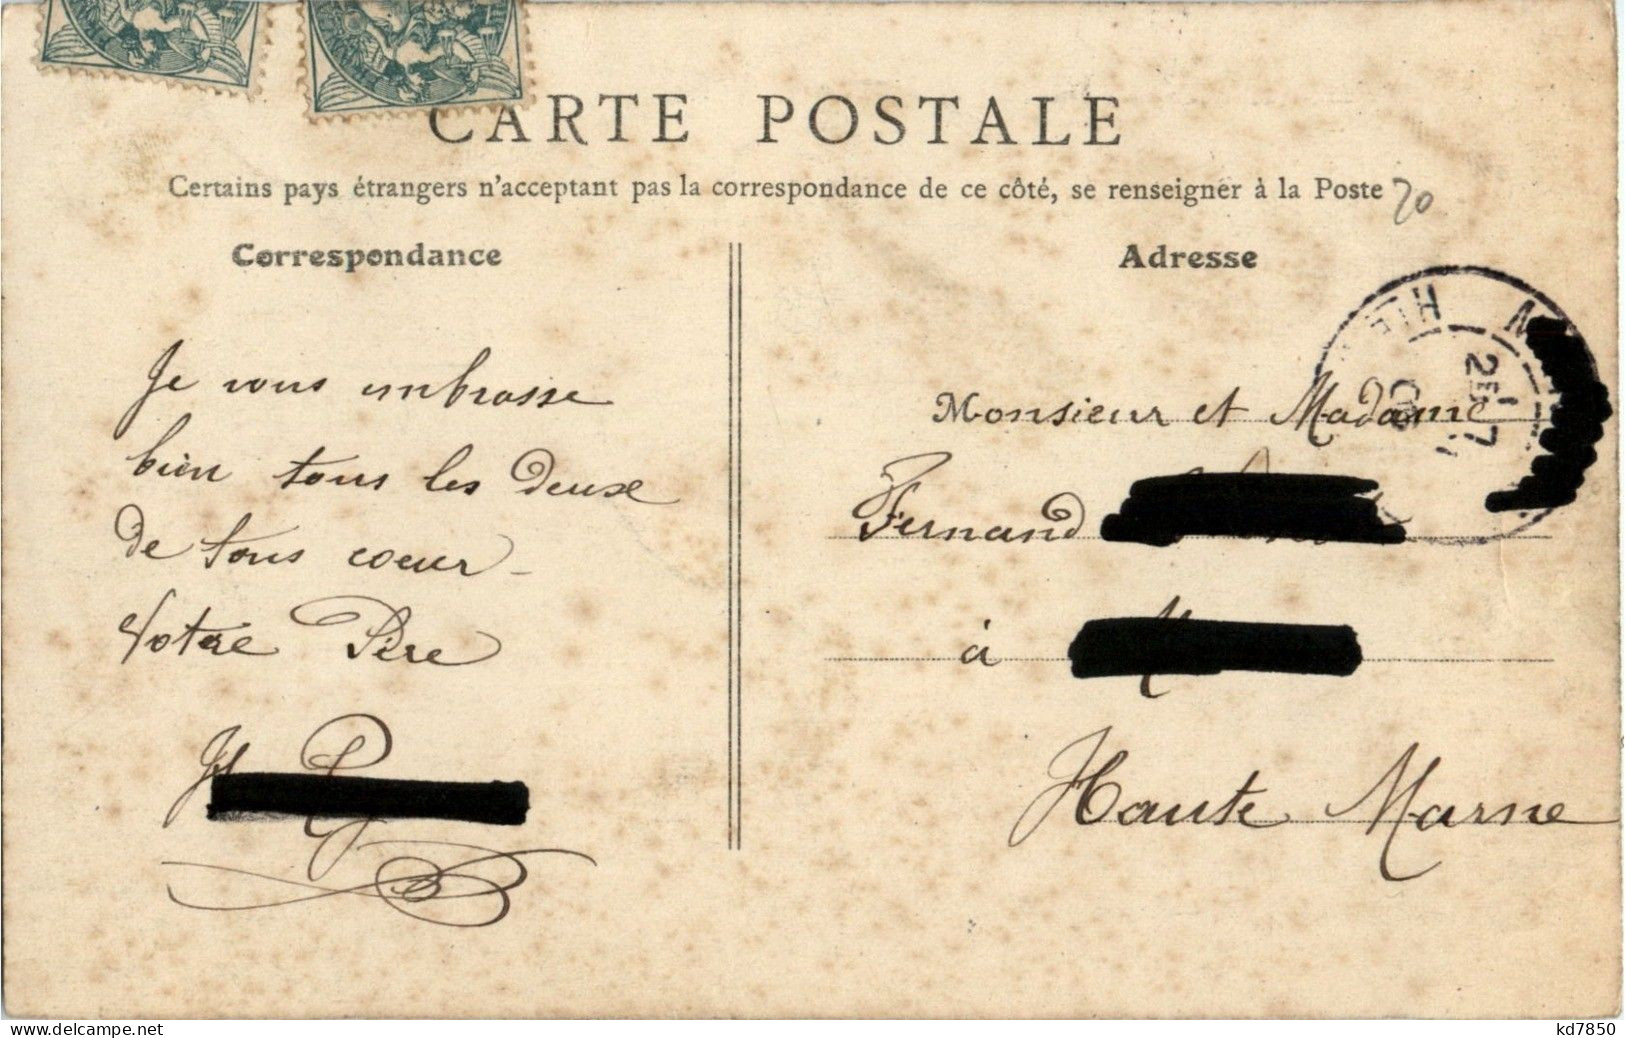 CARTE POSTALE
Certains pays étrangers n'acceptant pas la correspondance de ce côté, se renseigner à la Poste
20
Correspondance
Adresse
Je vous embrasse
bien tous les deux
de tous coeur -
Votre Père
Monsieur et Madame
Fernand
à
Haute Marne
www.delcampe.net
kd7850